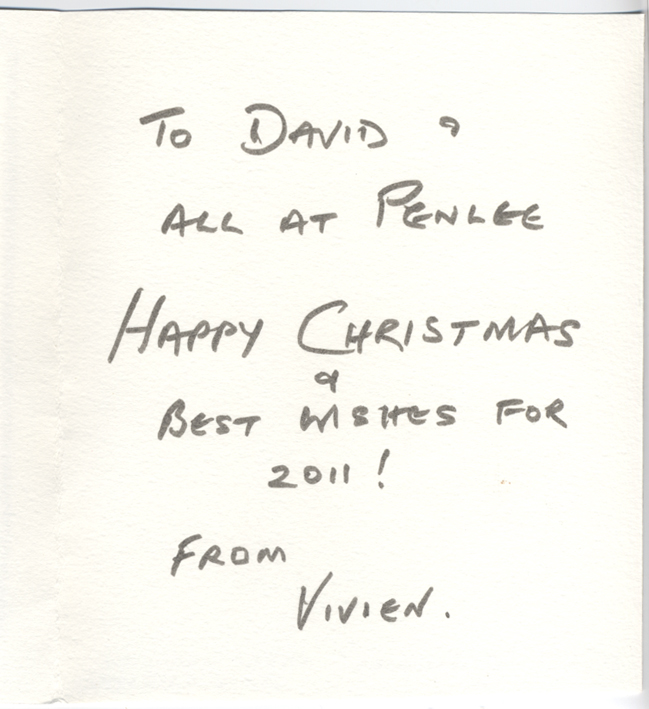 To DAVID &
ALL AT PENLEE
HAPPY CHRISTMAS
&
BEST WISHES FOR
2011!
FROM
VIVIEN.